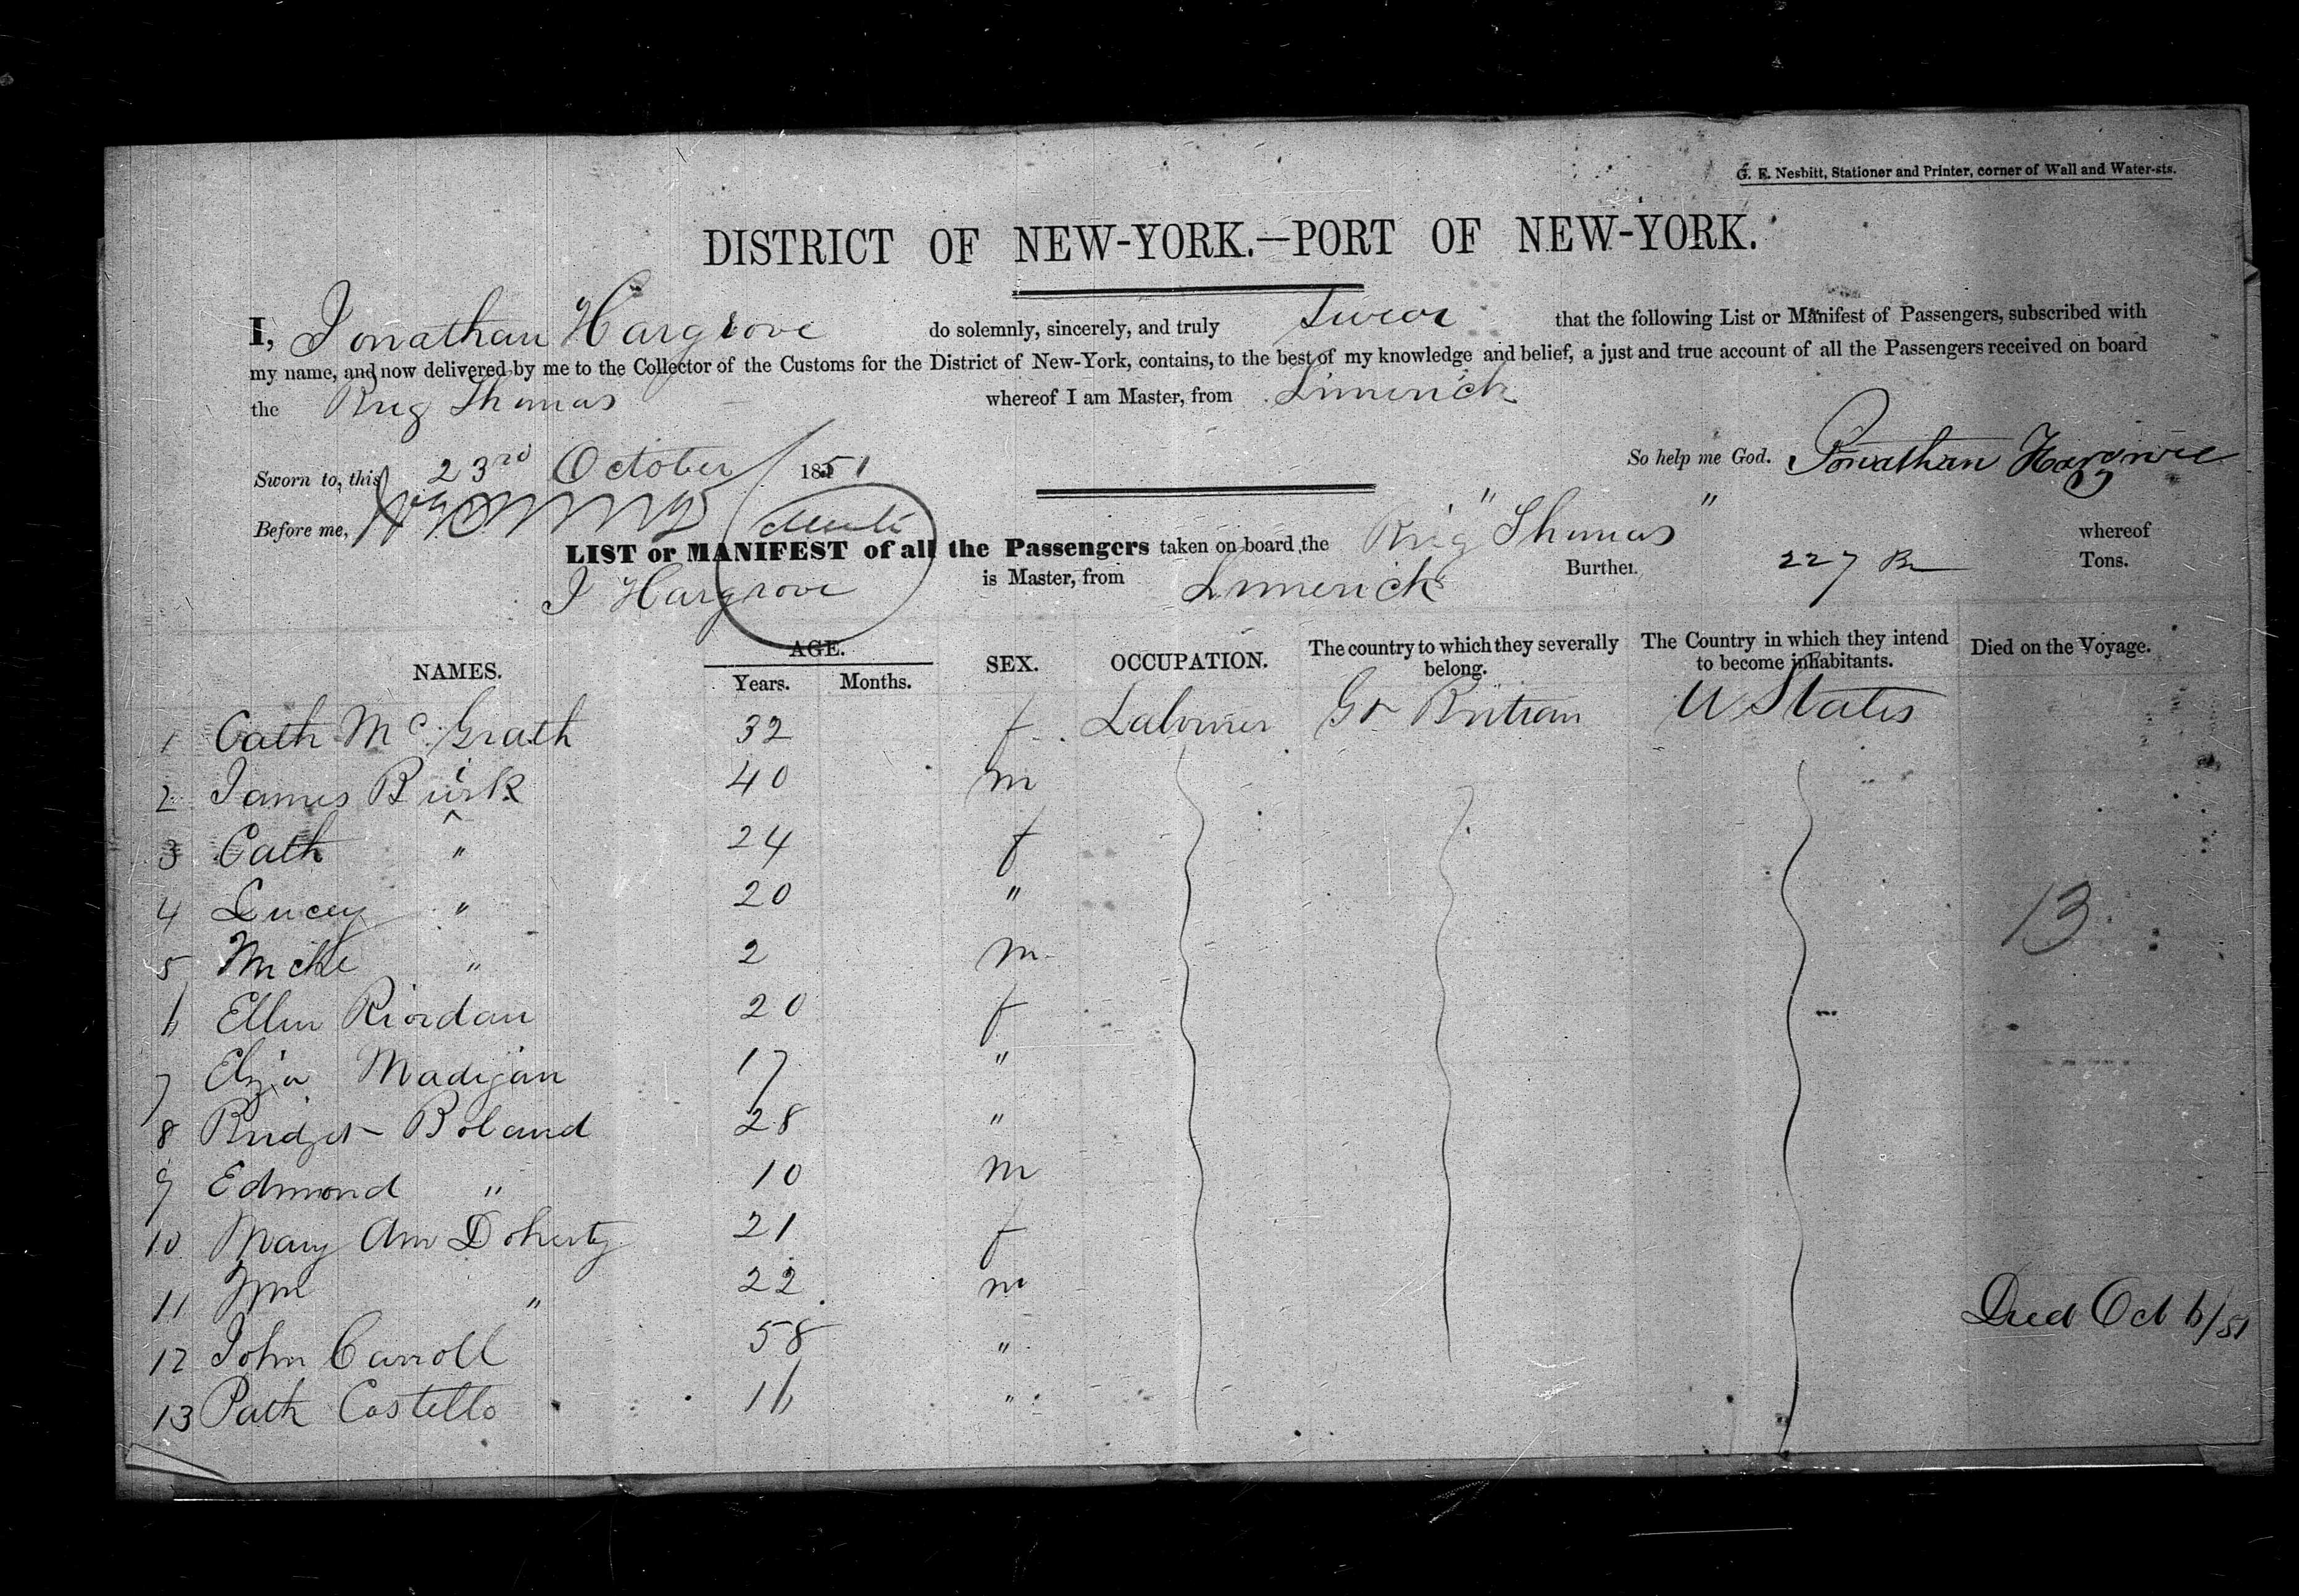 G. F. Nesbitt, Stationer and Printer, corner of Wall and Water-sts.
DISTRICT OF NEW-YORK.—PORT OF NEW-YORK.
I, Jonathan Hargrove do solemnly, sincerely, and truly Swear that the following List or Manifest of Passengers, subscribed with
my name, and now delivered by me to the Collector of the Customs for the District of New-York, contains, to the best of my knowledge and belief, a just and true account of all the Passengers received on board
the Brig Thomas whereof I am Master, from Limerick
Sworn to, this 23rd October 1851 So help me God. Jonathan Hargrove
Before me,
LIST or MANIFEST of all the Passengers taken on board the Brig "Thomas" whereof
J Hargrove is Master, from Limerick Burthen 227 Tons.
NAMES. AGE. Years. Months. SEX. OCCUPATION. The country to which they severally belong. The Country in which they intend to become inhabitants. Died on the Voyage.
1 Cath McGrath 32 f Labourer Gr Britian U States
2 James Burk 40 m
3 Cath " 24 f
4 Lucey " 20 "
5 Miche " 2 m
6 Ellen Riordan 20 f
7 Eliza Madigan 17 "
8 Bridget Boland 28 "
9 Edmond " 10 m
10 Mary Ann Doherty 21 f
11 Wm " 22 m
12 John Carroll 58 " Died Oct 6/51
13 Patk Costello 16 "
13